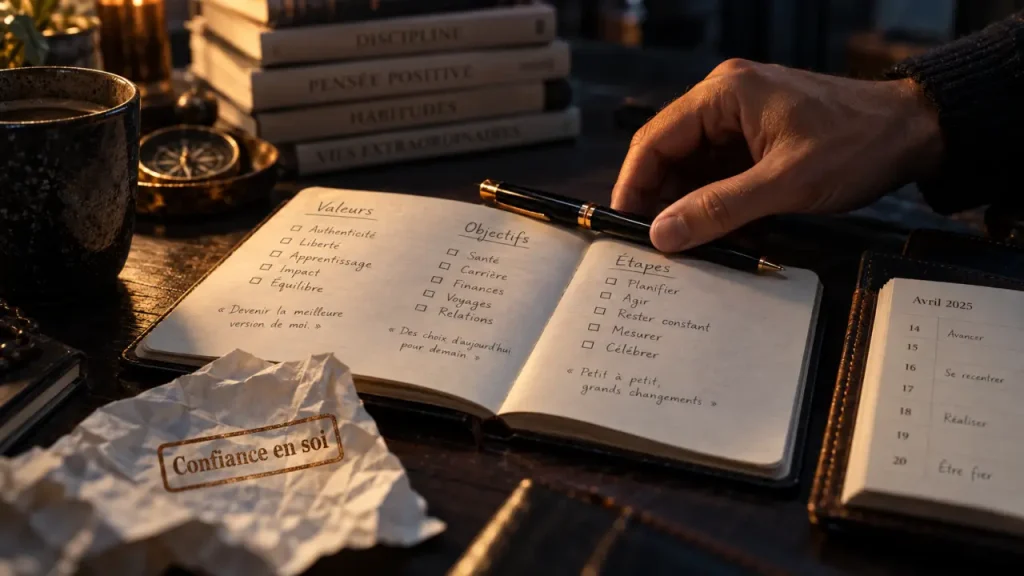 DISCIPLINE
PENSÉE POSITIVE
HABITUDES
VIES EXTRAORDINAIRES
Valeurs
Authenticité
Liberté
Apprentissage
Impact
Équilibre
« Devenir la meilleure
version de moi. »
Objectifs
Santé
Carrière
Finances
Voyages
Relations
« Des choix d'aujourd'hui
pour demain »
Étapes
Planifier
Agir
Rester constant
Mesurer
Célébrer
« Petit à petit,
grands changements »
Confiance en soi
Avril 2025
14 Avancer
15
16 Se recentrer
17
18 Réaliser
19
20 Être fier